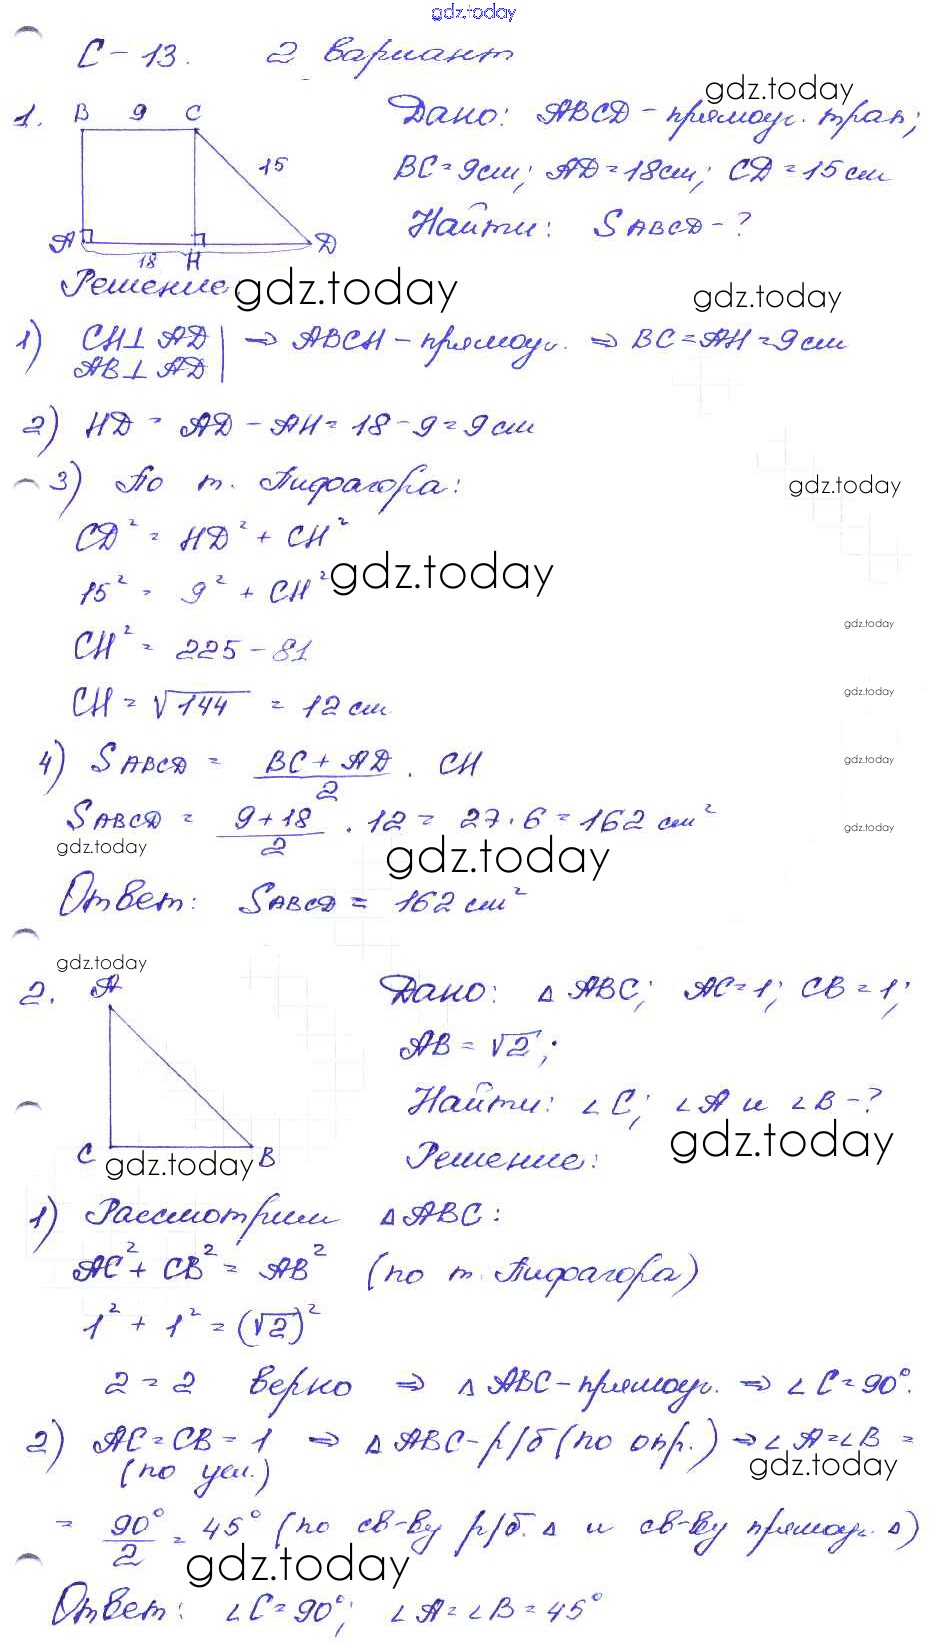 gdz.today
С-13. 2 вариант
gdz.today
1. B 9 C Дано: ABCD - прямоуг. трап;
15
BC = 9 см; AD = 18 см; CD = 15 см
Найти: SABCD - ?
A 18 H D
Решение
gdz.today
gdz.today
1) CH ⊥ AD | ⇒ ABCH - прямоуг. ⇒ BC = AH = 9 см
AB ⊥ AD |
2) HD = AD - AH = 18 - 9 = 9 см
3) По т. Пифагора:
gdz.today
CD² = HD² + CH²
15² = 9² + CH²
gdz.today
gdz.today
CH² = 225 - 81
gdz.today
CH = √144 = 12 см
gdz.today
4) SABCD = (BC + AD)/2 · CH
SABCD = (9 + 18)/2 · 12 = 27 · 6 = 162 см²
gdz.today
gdz.today
gdz.today
Ответ: SABCD = 162 см²
gdz.today
2. A Дано: △ ABC; AC = 1; CB = 1;
AB = √2;
Найти: ∠C; ∠A и ∠B - ?
gdz.today
C B
gdz.today
Решение:
1) Рассмотрим △ABC:
AC² + CB² = AB² (по т. Пифагора)
1² + 1² = (√2)²
2 = 2 верно ⇒ △ ABC - прямоуг. ⇒ ∠C = 90°.
2) AC = CB = 1 ⇒ △ ABC - р/б (по опр.) ⇒ ∠A = ∠B =
(по усл.)
gdz.today
= 90°/2 = 45° (по св-ву р/б. △ и св-ву прямоуг. △)
gdz.today
Ответ: ∠C = 90°; ∠A = ∠B = 45°